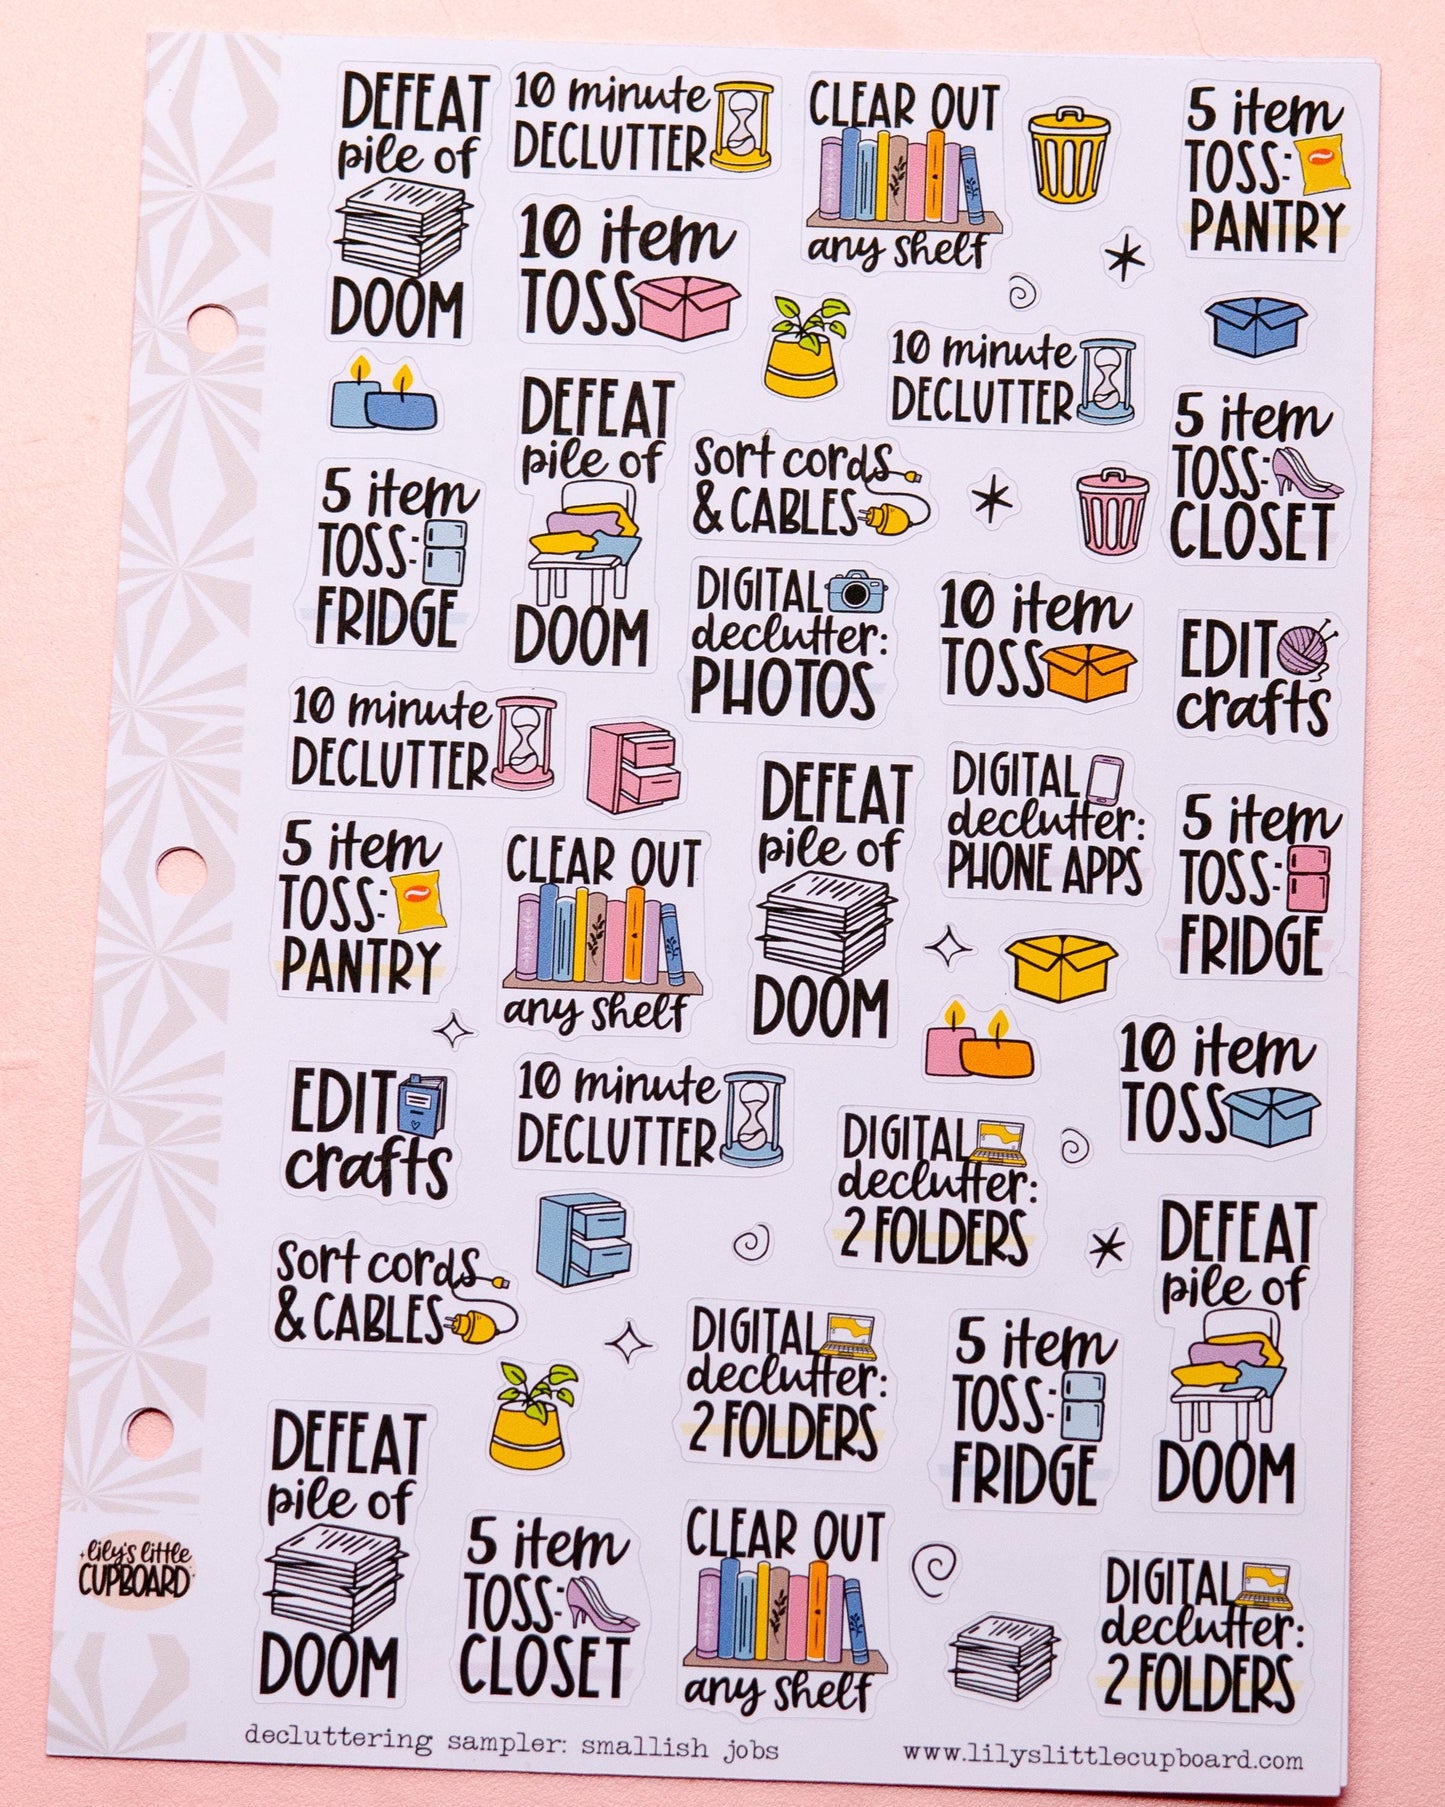 DEFEAT
pile of
DOOM
10 minute
DECLUTTER
CLEAR OUT
any shelf
5 item
TOSS:
PANTRY
10 item
TOSS
10 minute
DECLUTTER
5 item
TOSS:
CLOSET
DEFEAT
pile of
DOOM
sort cords
& CABLES
5 item
TOSS:
FRIDGE
DIGITAL
declutter:
PHOTOS
10 item
TOSS
EDIT
crafts
10 minute
DECLUTTER
DEFEAT
pile of
DOOM
DIGITAL
declutter:
PHONE APPS
5 item
TOSS:
FRIDGE
5 item
TOSS:
PANTRY
CLEAR OUT
any shelf
10 item
TOSS
EDIT
crafts
10 minute
DECLUTTER
DIGITAL
declutter:
2 FOLDERS
DEFEAT
pile of
DOOM
sort cords
& CABLES
DIGITAL
declutter:
2 FOLDERS
5 item
TOSS:
FRIDGE
DEFEAT
pile of
DOOM
5 item
TOSS:
CLOSET
CLEAR OUT
any shelf
DIGITAL
declutter:
2 FOLDERS
lily's little
CUPBOARD
decluttering sampler: smallish jobs
www.lilyslittlecupboard.com